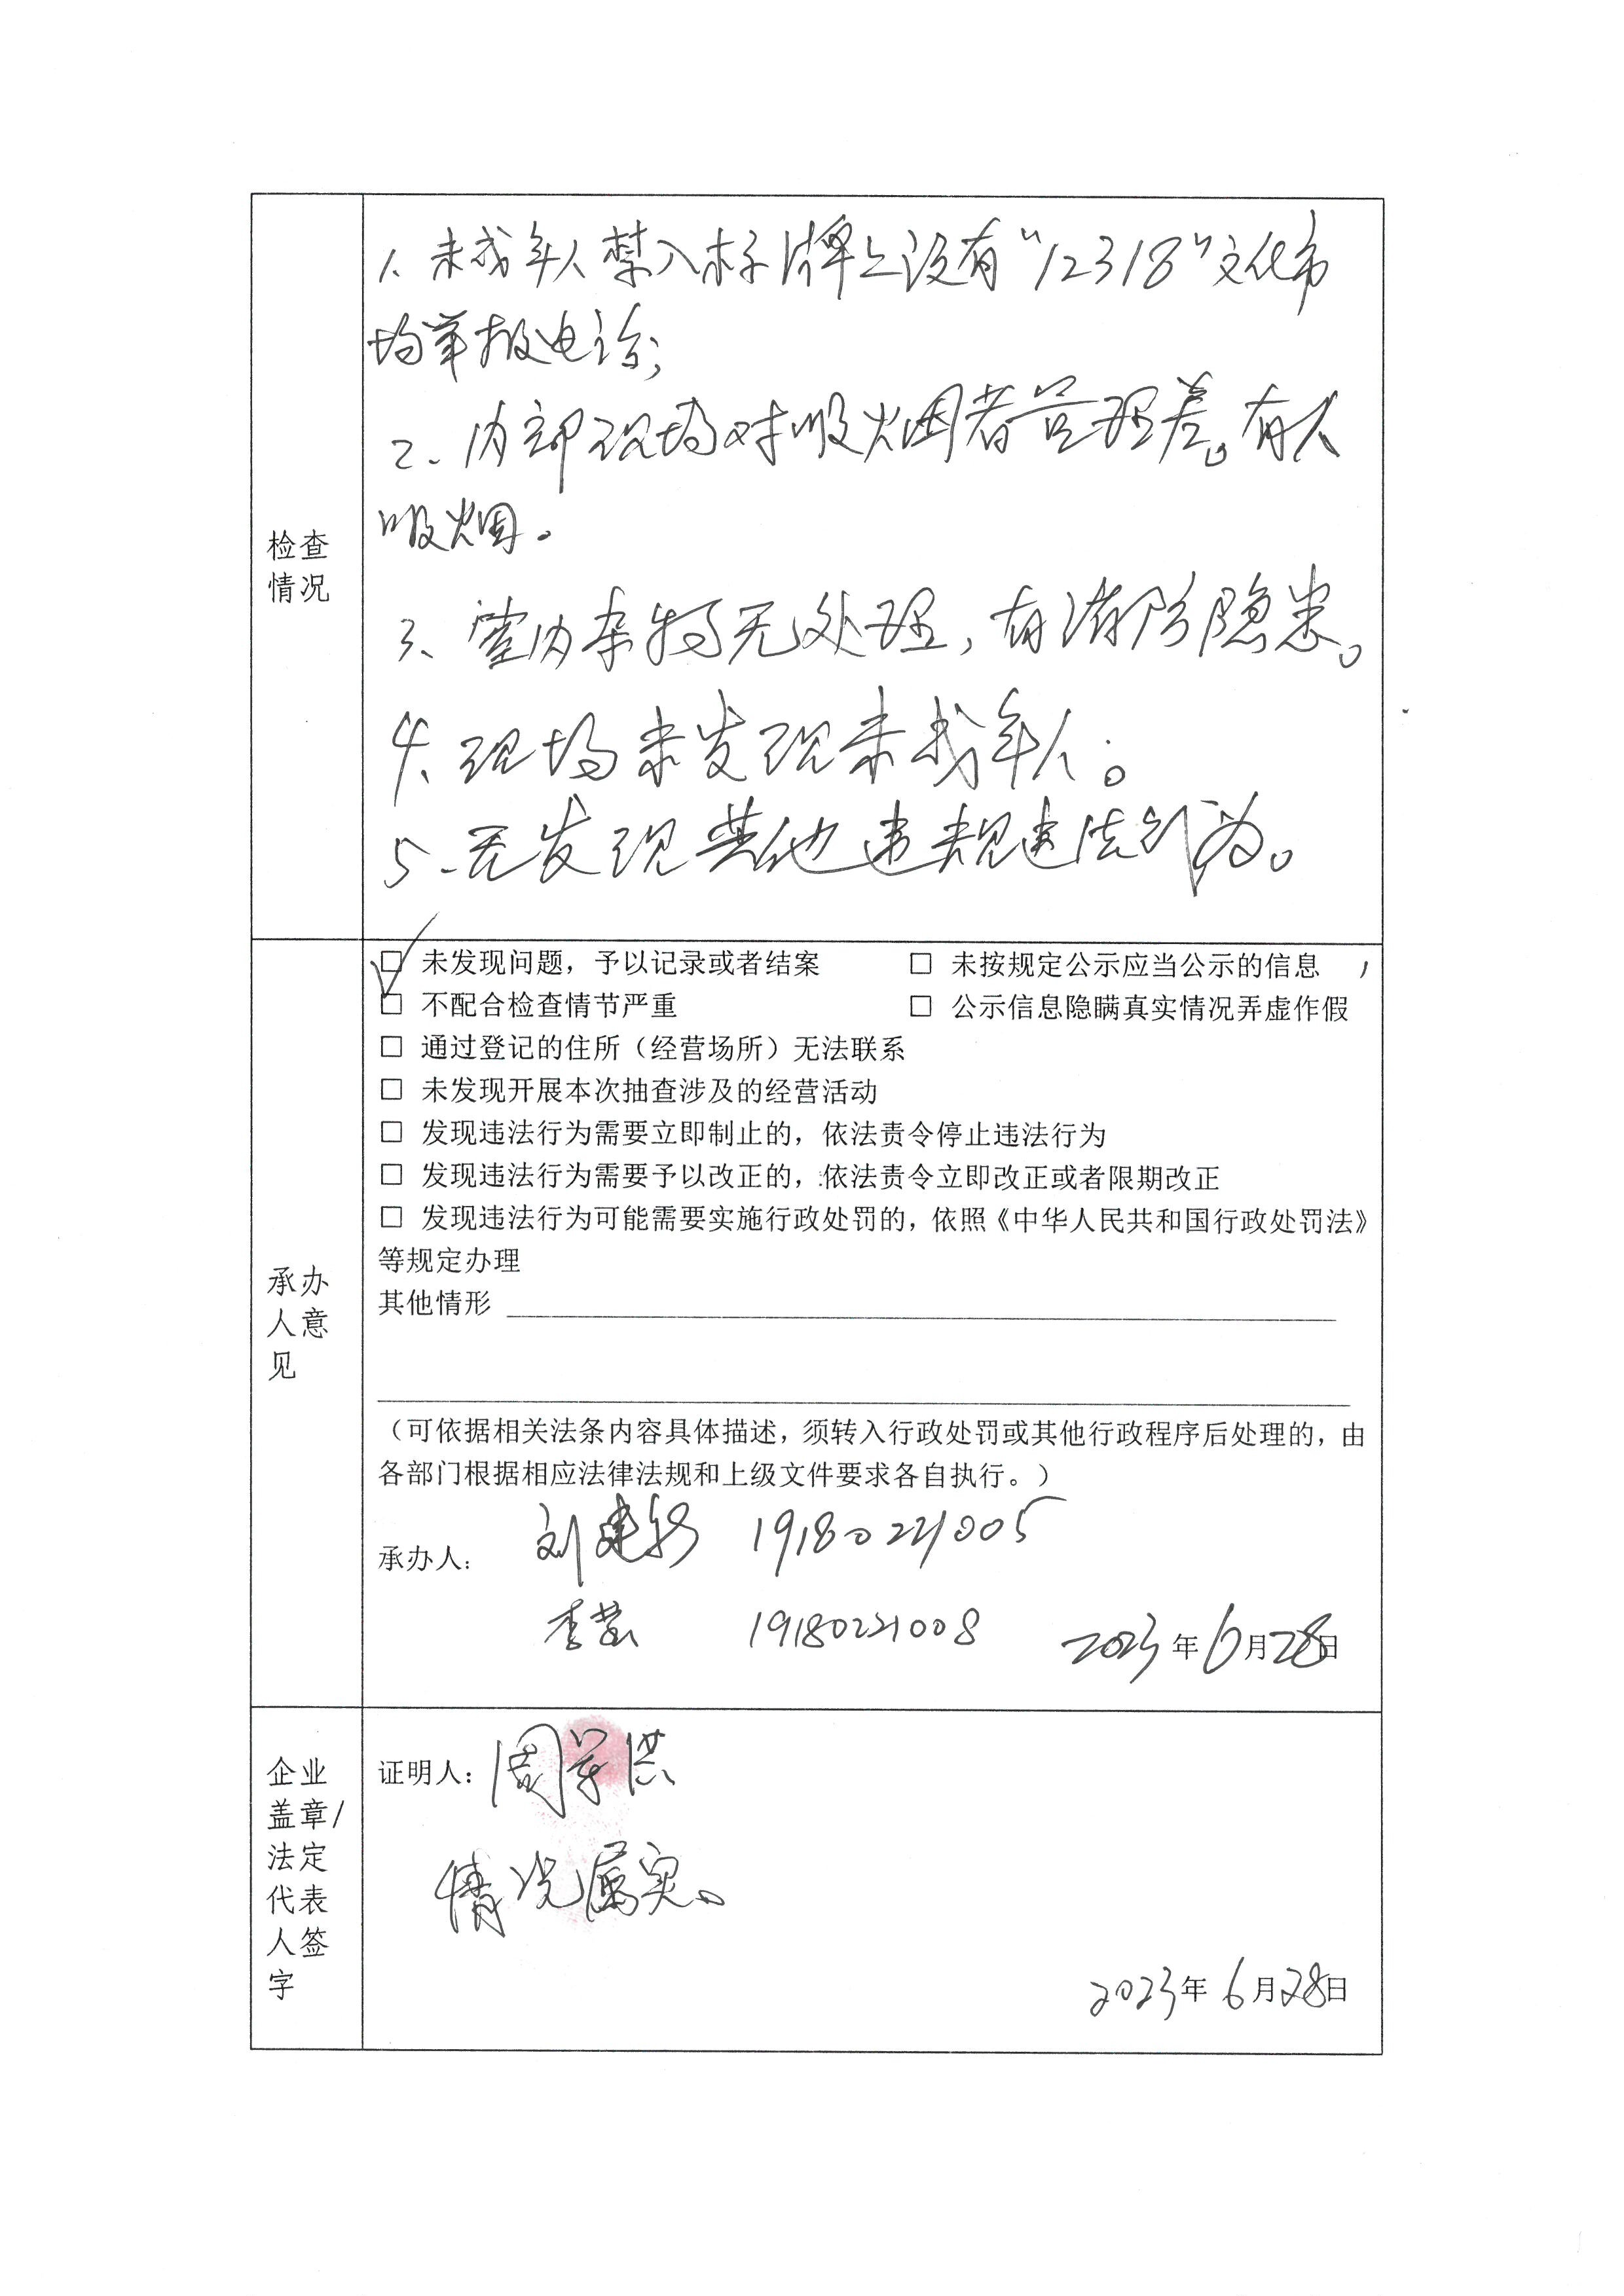 检查
情况
1、未成年人禁入标牌上没有“12318”文化市
场举报电话;
2、内部现场对吸烟者管理差。有人
吸烟。
3、室内杂物无处理,有消防隐患。
4、现场未发现未成年人。
5、无发现其他违规违法行为。
承办
人意
见
☑ 未发现问题，予以记录或者结案 □ 未按规定公示应当公示的信息
□ 不配合检查情节严重 □ 公示信息隐瞒真实情况弄虚作假
□ 通过登记的住所（经营场所）无法联系
□ 未发现开展本次抽查涉及的经营活动
□ 发现违法行为需要立即制止的，依法责令停止违法行为
□ 发现违法行为需要予以改正的，依法责令立即改正或者限期改正
□ 发现违法行为可能需要实施行政处罚的，依照《中华人民共和国行政处罚法》
等规定办理
其他情形
（可依据相关法条内容具体描述，须转入行政处罚或其他行政程序后处理的，由
各部门根据相应法律法规和上级文件要求各自执行。）
承办人： 刘建 19180221005
李 19180221008 2023年6月28日
企业
盖章/
法定
代表
人签
字
证明人： 周学洪
情况属实。
2023年6月28日